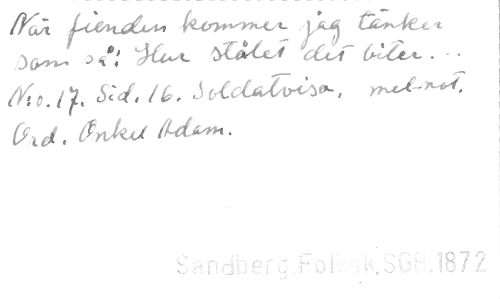 När fienden kommer jag tänker
som så: Hur stålet det biter...
N:o. 17. Sid. 16. Soldatvisa, mel-not.
Ord. Onkel Adam.
Sandberg, Folksk. SGB. 1872